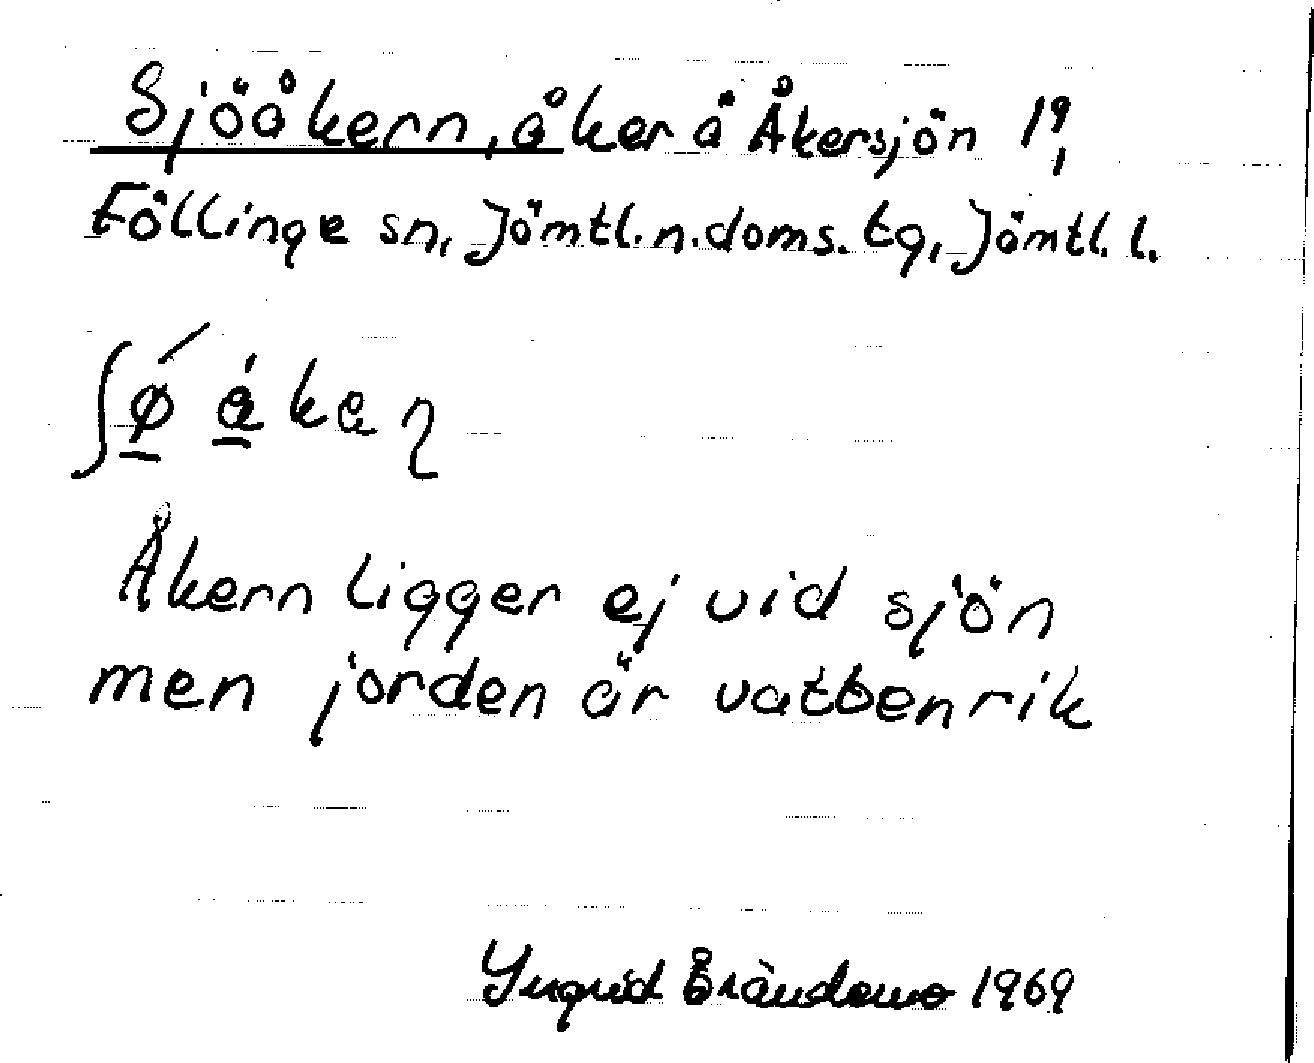 Sjöåkern, åker å Åkersjön 1⁹,
Föllinge sn, Jämtl. n. doms. tg, Jämtl. l.
Åkern ligger ej vid sjön
men jorden är vattenrik
Yngrid 1969